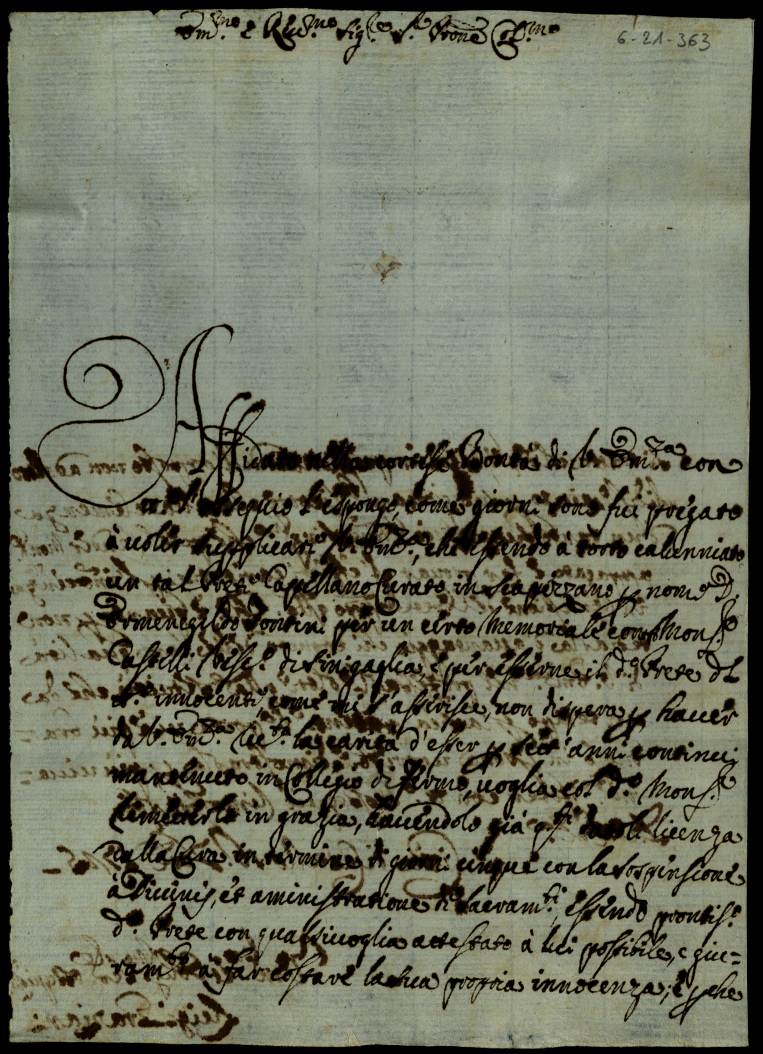 Em.mo e Rev.mo Sig.re S.r P.rone Col.mo
6-21-363
Affidato nella cortis.ma Bontà di V. Em.za con
ossequio l'espongo, come giorni sono fui pregato
à voler supplicare V. Em.za, che essendo à torto calunniato
un tal Prete Capellano Curato in Scapezzano p nome D.
Ermenegildo Pontini per un certo Memoriale con Mons.re
Castelli Vesc.o di Sinigaglia, e per esserne il d.o Prete
innocente come mi s'asserisce, non dispera p haver
da V. Em.za la carità d'esser p sett'anni continui
mantenuto in Collegio di Fermo, voglia col d.o Mons.re
rimetterlo in grazia, havendolo già licenza
dalla Cura in termine di giorni cinque con la sospensione
à Divinis, et aministratione de Sacram.ti, essendo prontis.o
d.o Prete con qualsivoglia attestato à lui possibile, e giu=
ram.to à far costare la sua propria innocenza; e p che